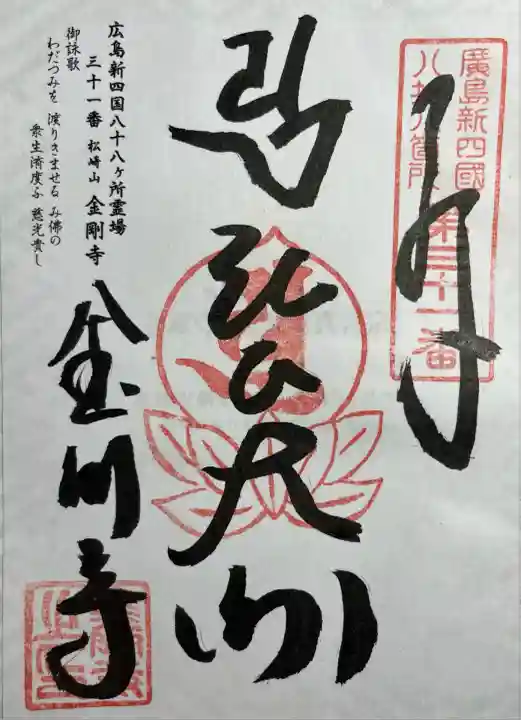 廣島新四國
八十八箇所 第三十一番
奉拝
弘法大師
金剛寺
広島新四国八十八ヶ所霊場
三十一番 松崎山 金剛寺
御詠歌
わだつみを 渡りきませる み佛の
衆生済度ふ 慈光貴し